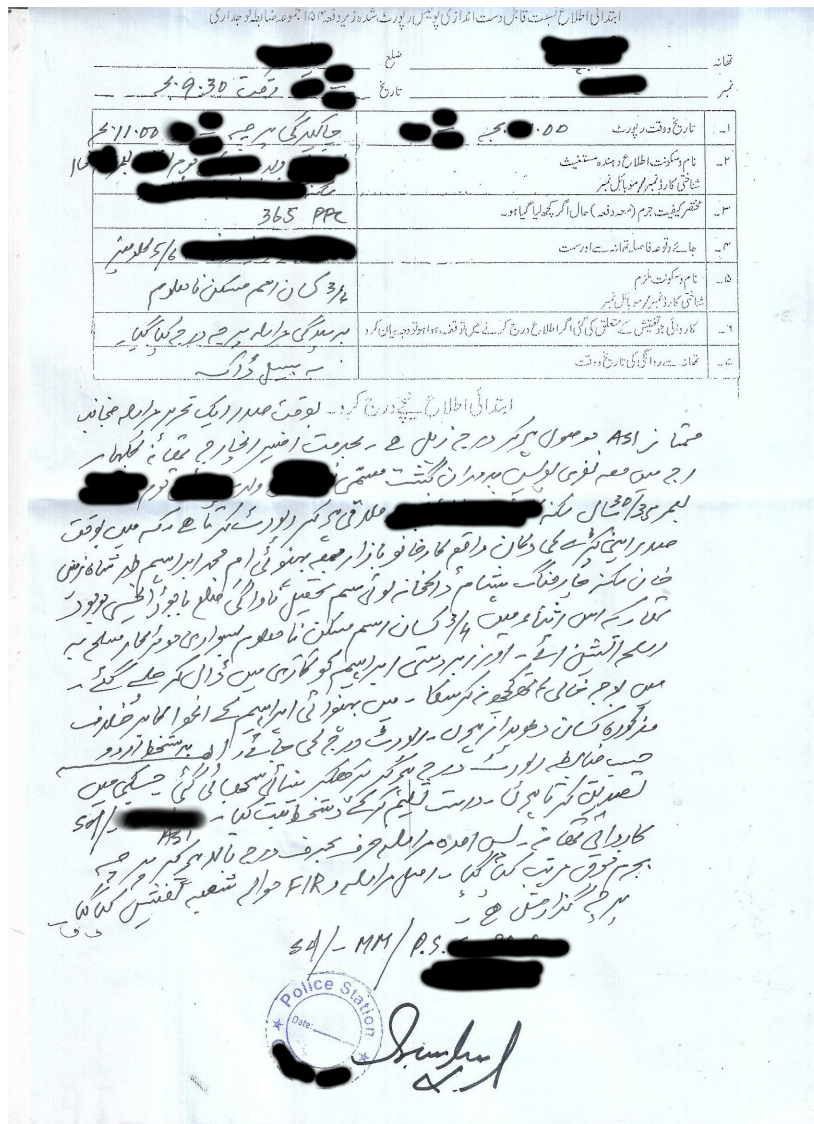 ابتدائی اطلاع نسبت قابل دست اندازی پولیس رپورٹ شدہ زیر دفعہ ۱۵۴ مجموعہ ضابطہ فوجداری
تھانہ ضلع
نمبر تاریخ وقت 9:30 بجے
۱۔ تاریخ و وقت رپورٹ .00 بجے چاکیدگی پرچہ 11:00 بجے
۲۔ نام و سکونت اطلاع دہندہ مستغیث ولد قوم
شناختی کارڈ نمبر / موبائل نمبر
۳۔ مختصر کیفیت جرم (معہ دفعہ) حال اگر کچھ لیا گیا ہو۔ 365 PPC
۴۔ جائے وقوعہ فاصلہ تھانہ سے اور سمت 5/6 کلومیٹر
۵۔ نام و سکونت ملزم 3/4 کسان اسم مسکن نامعلوم
شناختی کارڈ نمبر / موبائل نمبر
۶۔ کاروائی جو تفتیش کے متعلق کی گئی اگر اطلاع درج کرنے میں توقف ہوا ہو تو وجہ بیان کرو برسیدگی مراسلہ پرچہ درج کیا گیا
تھانہ سے روانگی کی تاریخ و وقت بہ سبیل ڈاک
ابتدائی اطلاع نیچے درج کرو۔ بوقت صدر ایک تحریر مراسلہ منجانب
ASI موصول ہو کر درج ذیل ہے۔ بخدمت افسر انچارج تھانہ
میں معہ نفری پولیس بدوران گشت ولد قوم
بعمر 30/35 سال سکنہ ملاقی ہو کر رپورٹ کرتا ہے۔ کہ میں بوقت
صدر اپنی کی دکان واقع کارخانو بازار معہ بہنوئی ام محمد ابراہیم
خان سکنہ ڈاکخانہ تحصیل ضلع باجوڑ ایجنسی موجود
تھا کہ اس اثناء میں 3/4 کسان اسم مسکن نامعلوم بسواری موٹرکار مسلح بہ
اسلحہ آتشیں آئے۔ اور زبردستی ابراہیم کو گاڑی میں ڈال کر چلے گئے۔
میں بوجہ خالی ہاتھ کچھ نہ کر سکا۔ میں بہنوئی ابراہیم کے اغوا کا برخلاف
مذکورہ کسان دعویدار ہوں۔ رپورٹ درج کی جائے۔ دستخط اردو
حسب ضابطہ رپورٹ درج ہو کر پڑھ کر سنائی سمجھائی گئی جسکی میں
تصدیق کرتا ہوں۔ درست تسلیم کر کے دستخط ثبت کیا۔ Sd/-
ASI
کاروائی تھانہ۔ پس آمدہ مراسلہ حرف بحرف درج بالا ہو کر پرچہ
بجرم فوق مرتب کیا گیا۔ اصل مراسلہ و FIR حوالہ شعبہ تفتیش کیا گیا
پرچہ گزارش ہے
Sd/- MM / P.S.
Police Station
Date: